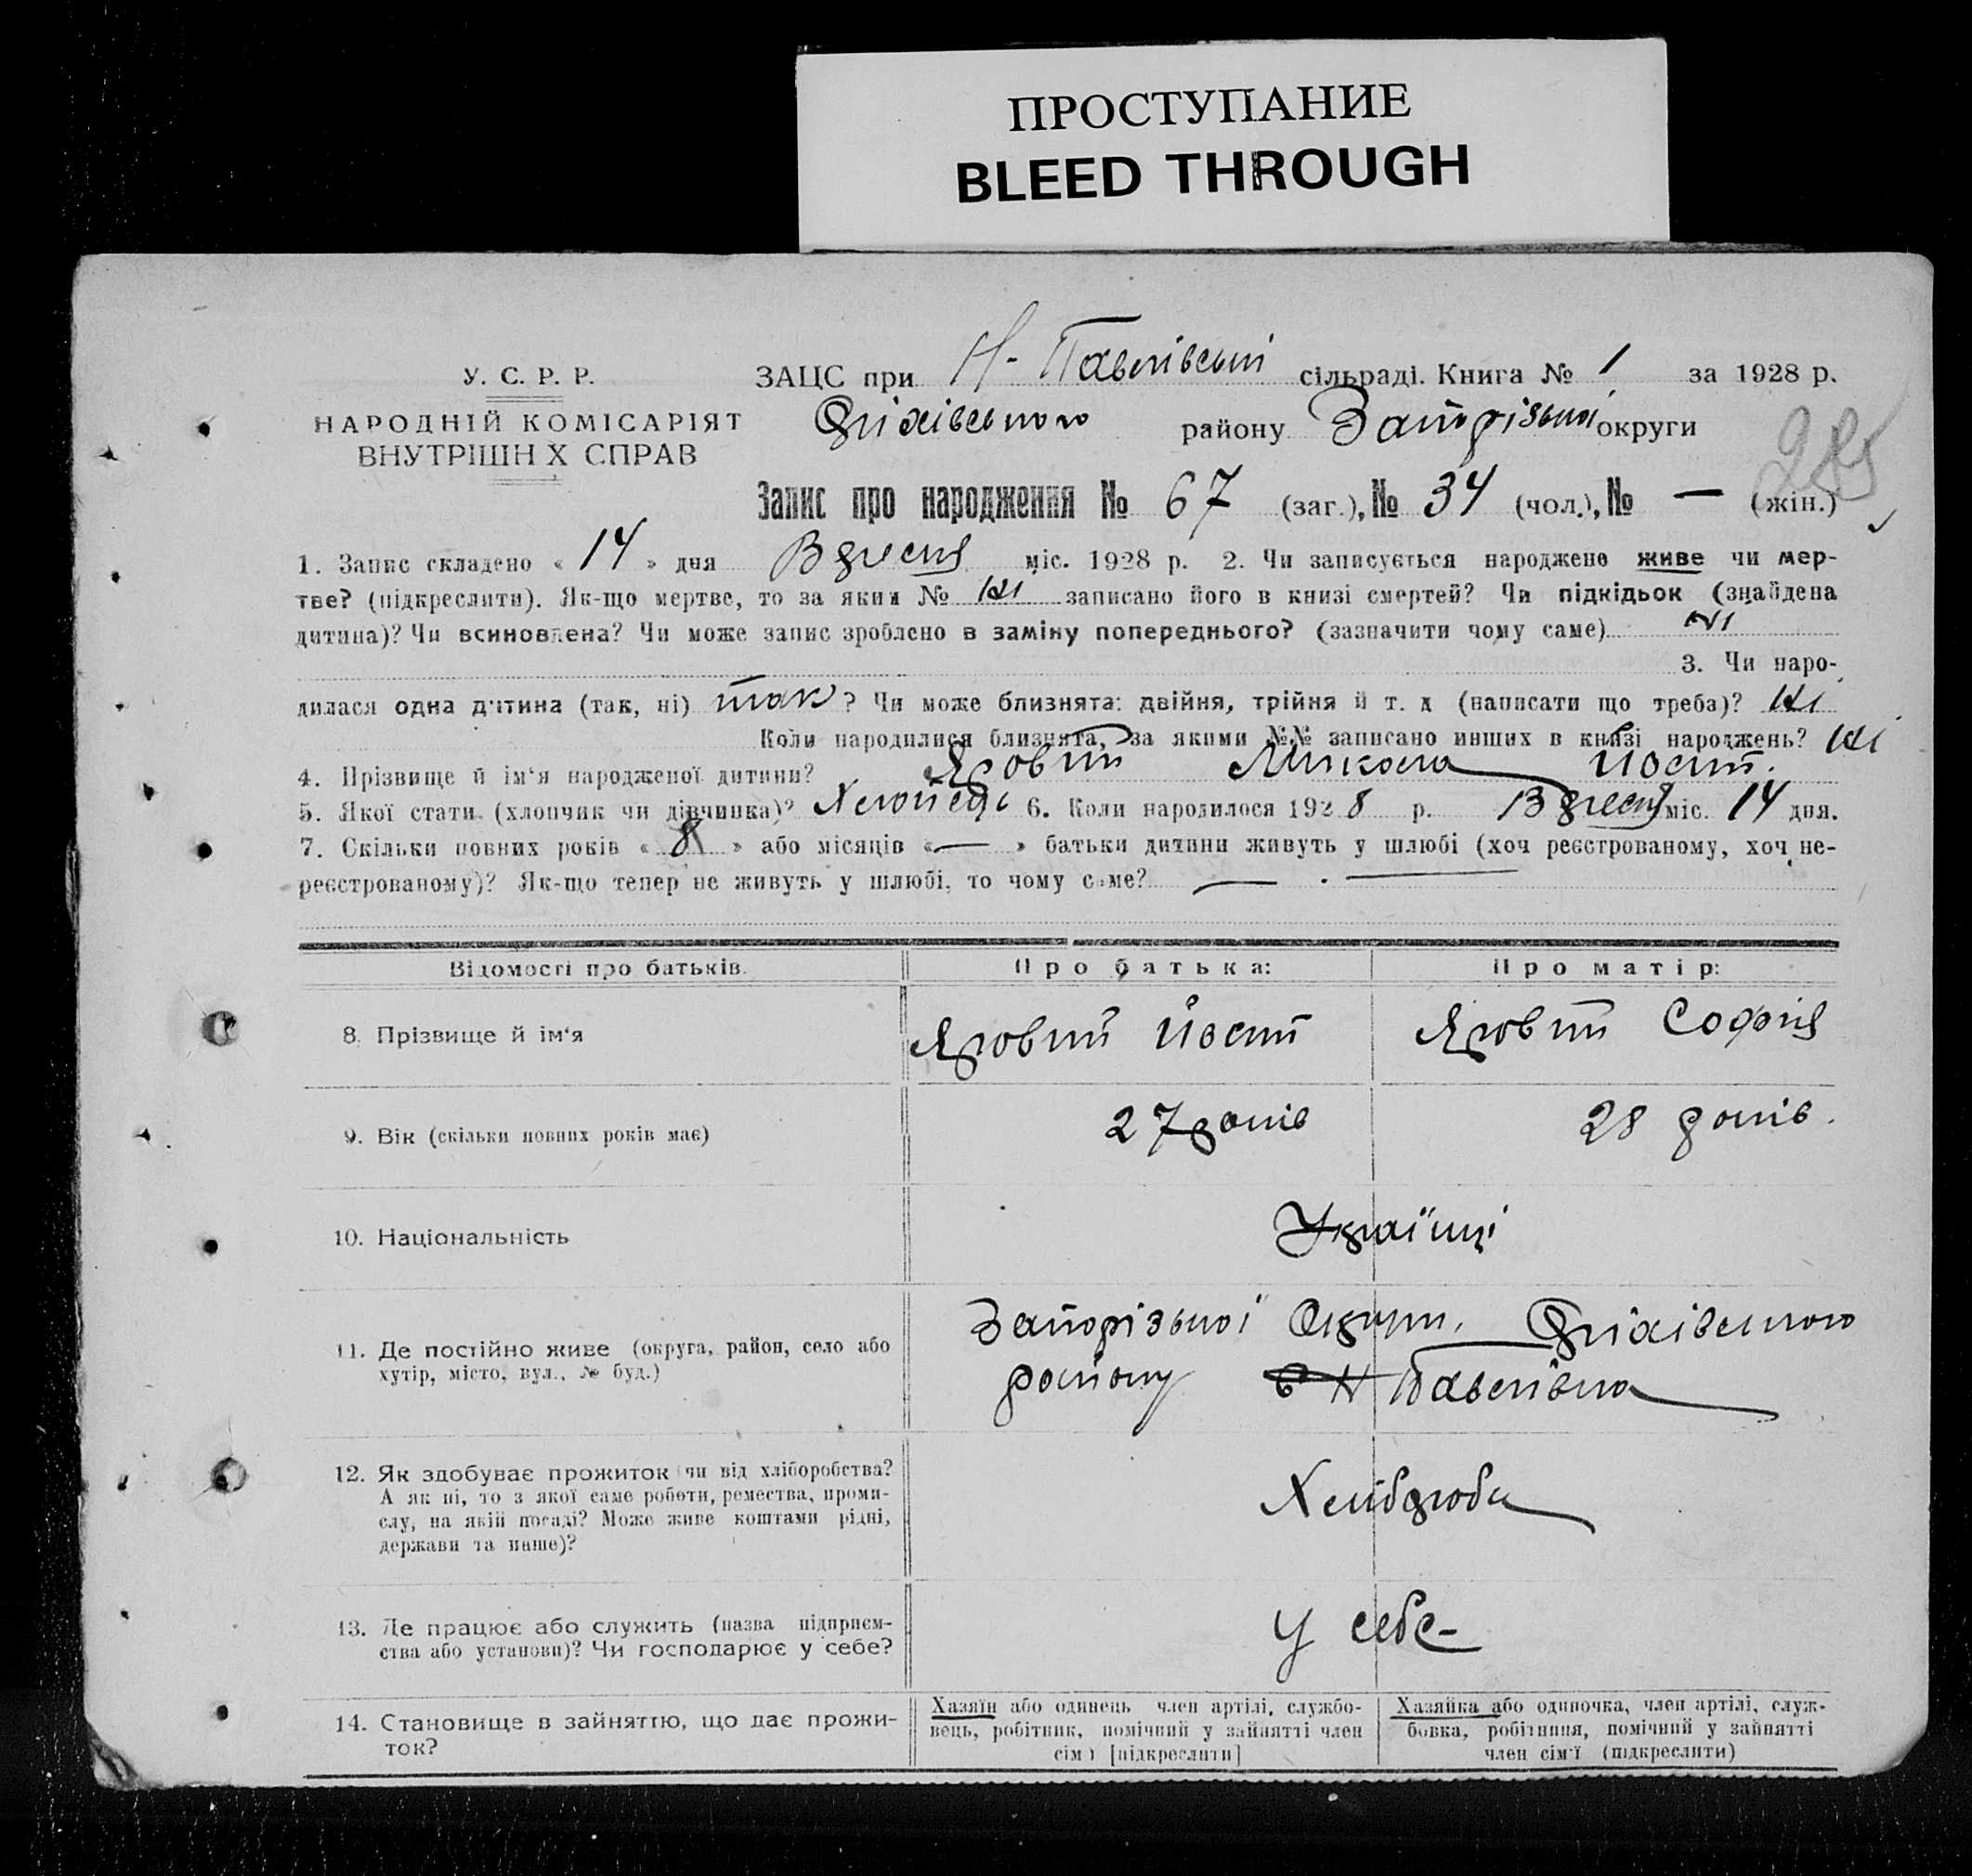 ПРОСТУПАНИЕ
BLEED THROUGH
У. С. Р. Р.
НАРОДНІЙ КОМІСАРІЯТ
ВНУТРІШН Х СПРАВ
ЗАЦС при Н-Павлівській сільраді. Книга № 1 за 1928 р.
Оріхівського району Запорізької округи
285
Запис про народження № 67 (заг.), № 34 (чол.), № — (жін.)
1. Запис складено « 14 » дня Вересня міс. 1928 р. 2. Чи записується народжене живе чи мер-
тве? (підкреслити). Як-що мертве, то за яким № Ні записано його в книзі смертей? Чи підкідьок (знайдена
дитина)? Чи всиновлена? Чи може запис зроблено в заміну попереднього? (зазначити чому саме) Ні
3. Чи наро-
дилася одна дитина (так, ні) так? Чи може близнята: двійня, трійня й т. д (написати що треба)? Ні
Коли народилися близнята, за якими №№ записано инших в книзі народжень? Ні
4. Прізвище й ім'я народженої дитини? Яровий Микола Йосип.
5. Якої стати (хлопчик чи дівчинка)? Хлопець 6. Коли народилося 1928 р. Вересня міс. 14 дня.
7. Скільки повних років « 8 » або місяців « — » батьки дитини живуть у шлюбі (хоч реєстрованому, хоч не-
реєстрованому)? Як-що тепер не живуть у шлюбі, то чому саме? — . —
Відомості про батьків. Про батька: Про матір:
8. Прізвище й ім'я Яровий Йосип Яровий Софія
9. Вік (скільки повних років має) 27 років 28 років.
10. Національність Українці
11. Де постійно живе (округа, район, село або
хутір, місто, вул., № буд.)
Запорізької Округи, Оріхівського
району Н Павлівка
12. Як здобуває прожиток чи від хліборобства?
А як ні, то з якої саме роботи, ремества, проми-
слу, на якій посаді? Може живе коштами рідні,
держави та инше)?
Хлібороби
13. Де працює або служить (назва підприєм-
ства або установи)? Чи господарює у себе?
У себе
14. Становище в зайняттю, що дає прожи-
ток?
Хазяїн або одинець член артілі, службо-
вець, робітник, помічний у зайнятті член
сім ї [підкреслити]
Хазяйка або одиночка, член артілі, служ-
бовка, робітниця, помічний у зайнятті
член сім'ї (підкреслити)